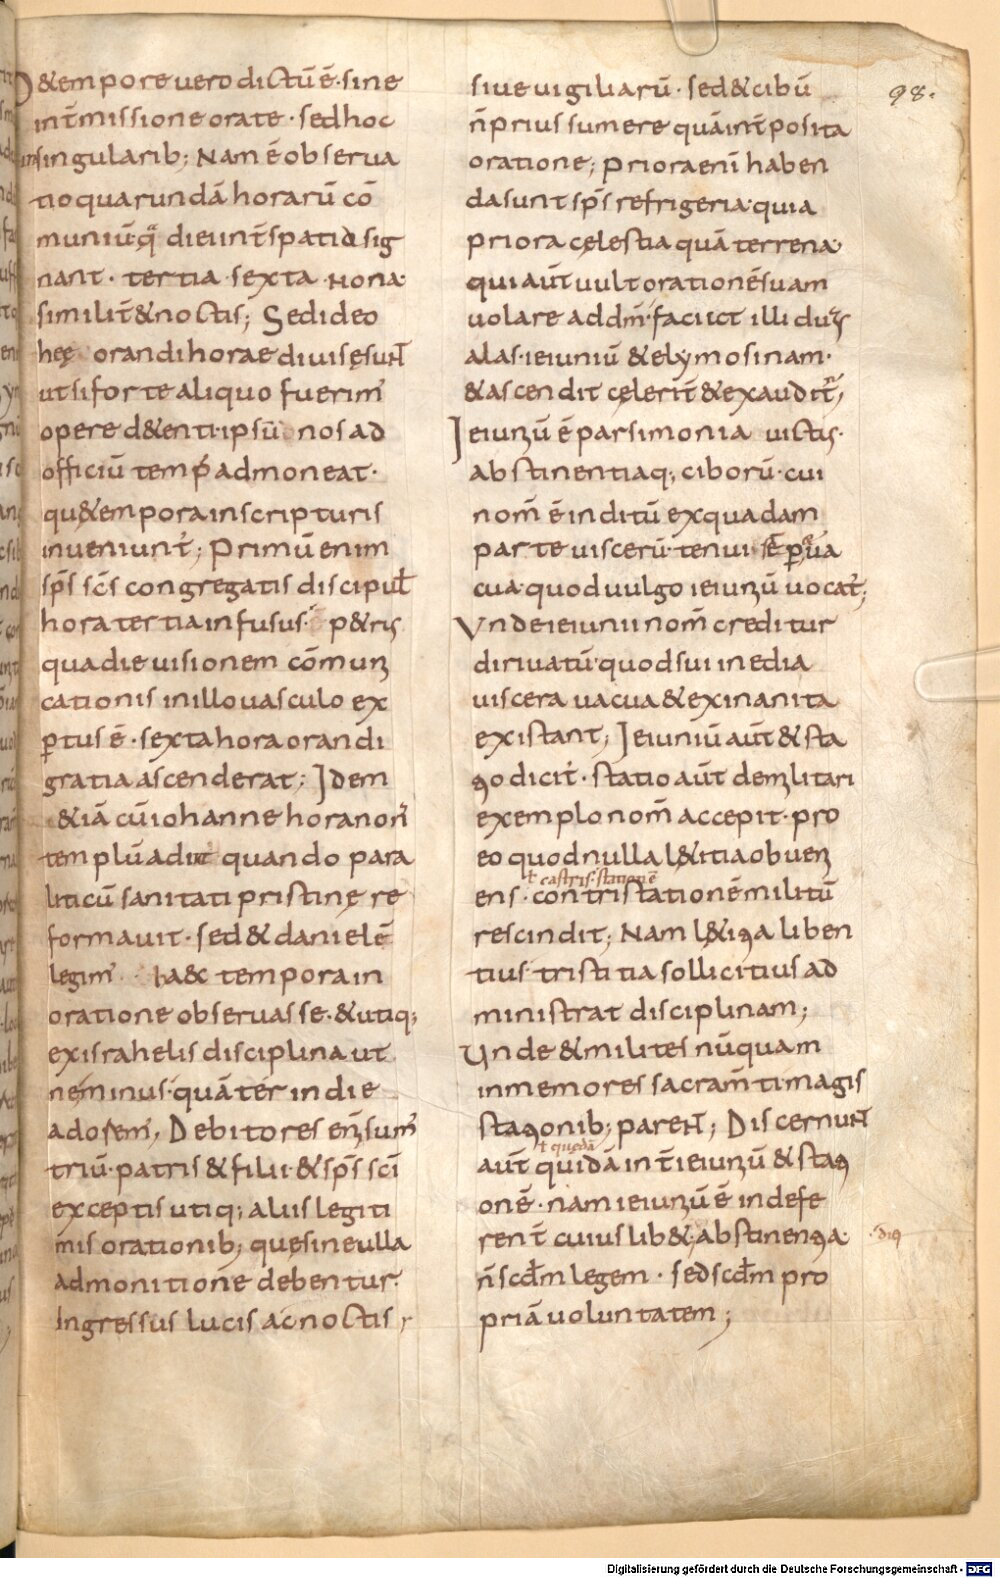 D&empore vero dictū ē· sine
int̄missione orate· sed hoc
in singularib; Nam ē observa
tio quarundā horarū cō
muniū· q̄ diei int̄spatia sig
nant· tertia· sexta· nona·
similit̄ & noctis; Sed ideo
heę orandi horae divisę suNT
ut si forte aliquo fuerim'
opere d&enti· ipsū nos ad
officiū temp' admoneat·
qu&empora in scripturis
inveniunt'; Primū enim
sp̄s sc̄s congregatis discipul'
hora tertia infusus· p&rus
qua die visionem cōmuni
cationis in illo vasculo ex
ptus ē· sexta hora orandi
gratia ascenderat; Idem
&iā cū iohanne hora non'
templū adiit quando para
liticū sanitati pristinę re
formavit· sed & danielē
legim' haec tempora in
oratione observasse· & utiq;
ex israhelis disciplina ut
ne minus· quā ter in die
adorem'; Debitores enī sum'
triū· patris & filii· & sp̄s sc̄i
exceptis utiq; aliis legiti
mis orationib; quę sine ulla
admonitione debentur·
Ingressus lucis ac noctis
98·
sive vigiliarū· sed & cibū
n̄ prius sumere quā int̄posita
oratione; Priora enī haben
da sunt sp̄s refrigeria· quia
priora cęlestia quā terrena·
qui aūt vult orationē suam
volare ad dm̄· faciat illi duas
alas· ieiuniū & elymosinam·
& ascendit cęlerit̄ & exaudit';
Ieiuniū ē parsimonia victus·
abstinentiaq; ciborū· cui
nom̄ ē inditū ex quadam
parte viscerū· tenui sēp & va
cua· quod vulgo ieiunū vocat';
Unde ieiunii nom̄ creditur
dirivatū· quod sui inedia
viscera vacua & exinanita
existant; Ieiuniū aūt & sta
tio dicit'· statio aūt de militari
exemplo nom̄ accepit· pro
eo quod nulla l&itia obveni
ł castris· stationē
ens· contristationē militū
rescindit; Nam l&itia liben
tius· tristitia sollicitius ad
ministrat disciplinam;
Unde & milites nūquam
inmemores sacram̄ti magis
stationib; pareNT; DiscernuNT
ł quędā
aūt quidā int̄ ieiuniū & stati
onē· nam ieiuniū ē indefe
rent̄ cuiuslib& abstinentia·
n̄ scd̄m legem· sed scd̄m pro
priā voluntatem;